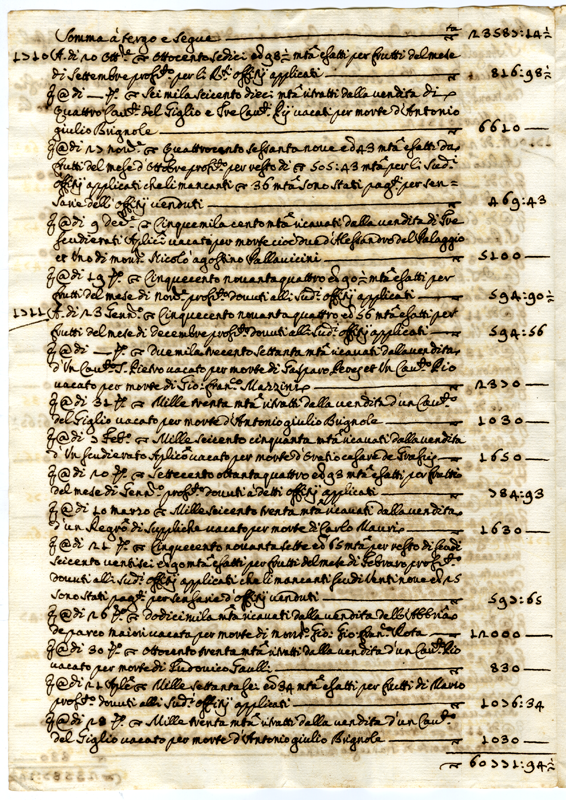 Somma à tergo e segue — 23583:14½
1710 A di 20 Ottre Ottocento sedici ed 98½ mta esatti per frutti del mese
di Settembre per li offitij applicati — 816:98½
E @ di — Sei mila seicento dieci mta ritratti dalla vendita di
quattro Cavri del Giglio e Tre Cavri Pij vacati per morte d'Antonio
giulio Brignole — 6610 —
E @ di 23 novre Quattrocento sessanta nove ed 43 mta esatti da
frutti del mese d'Ottobre per resto di 505:43 mta per li Sudi
offitij applicati che li mancanti 36 mta sono stati pagti per sen=
sarie dell'offitij venduti — 469:43
E @ di 9 decre Cinque mila cento mta ricavati dalla vendita di Tre
scudierati Aplici vacati per morte cioè due d'Alessandro del Palaggio
et Uno di monr Nicolo agostino Pallavicini — 5100 —
E @ di 19 Cinquecento novanta quattro ed 90½ mta esatti per
frutti del mese di novre dovuti alli Sudi offitij applicati — 594:90½
1711 A di 23 Gennro Cinquecento novanta quattro ed 56 mta esatti per
frutti del mese di decembre dovuti alli Sudi offitij applicati — 594:56
E @ di — Due mila trecento settanta mta ricavati dalla vendita
d'Un Cavto S. Pietro vacato per morte di Gasparo et Un Cavto Pio
vacato per morte di Gio: Franco Mazzini — 2370 —
E @ di 31 Mille trenta mta ritratti dalla vendita d'un Cavto
del Giglio vacato per morte d'Antonio giulio Brignole — 1030 —
E @ di 3 Febro Mille seicento cinquanta mta ricavati dalla vendita
d'Un scudierato Aplico vacato per morte d'Oratio cesare de — 1650 —
E @ di 20 Settecento ottanta quattro ed 93 mta esatti per frutti
del mese di Gennro dovuti a detti offitij applicati — 784:93
E @ di 10 marzo Mille seicento trenta mta ricavati dalla vendita
d'un Regro di Suppliche vacato per morte di Carlo Mauri — 1630 —
E @ di 21 Cinquecento novanta sette ed 65 mta per resto di scudi
seicento ventisei ed 90 mta esatti per frutti del mese di Febraro
dovuti alli Sudi offitij applicati che li mancanti scudi Venti nove ed 25
sono stati pagti per senserie d'offitij venduti — 597:65
E @ di 26 dodici mila mta ricavati dalla vendita dell'Abbria
de parco maiori vacata per morte di monr Gio: Franco Rota — 12000 —
E @ di 30 Ottocento trenta mta ritratti dalla vendita d'un Cavto Pio
vacato per morte di Ludovico Gaulli — 830
E @ di 21 Aple Mille settanta sei ed 34 mta esatti per frutti di Marzo
dovuti alli Sudi offitij applicati — 1076:34
E @ di 28 Mille trenta mta ritratti dalla vendita d'un Cavto
del Giglio vacato per morte d'Antonio giulio Brignole — 1030 —
60771:94½